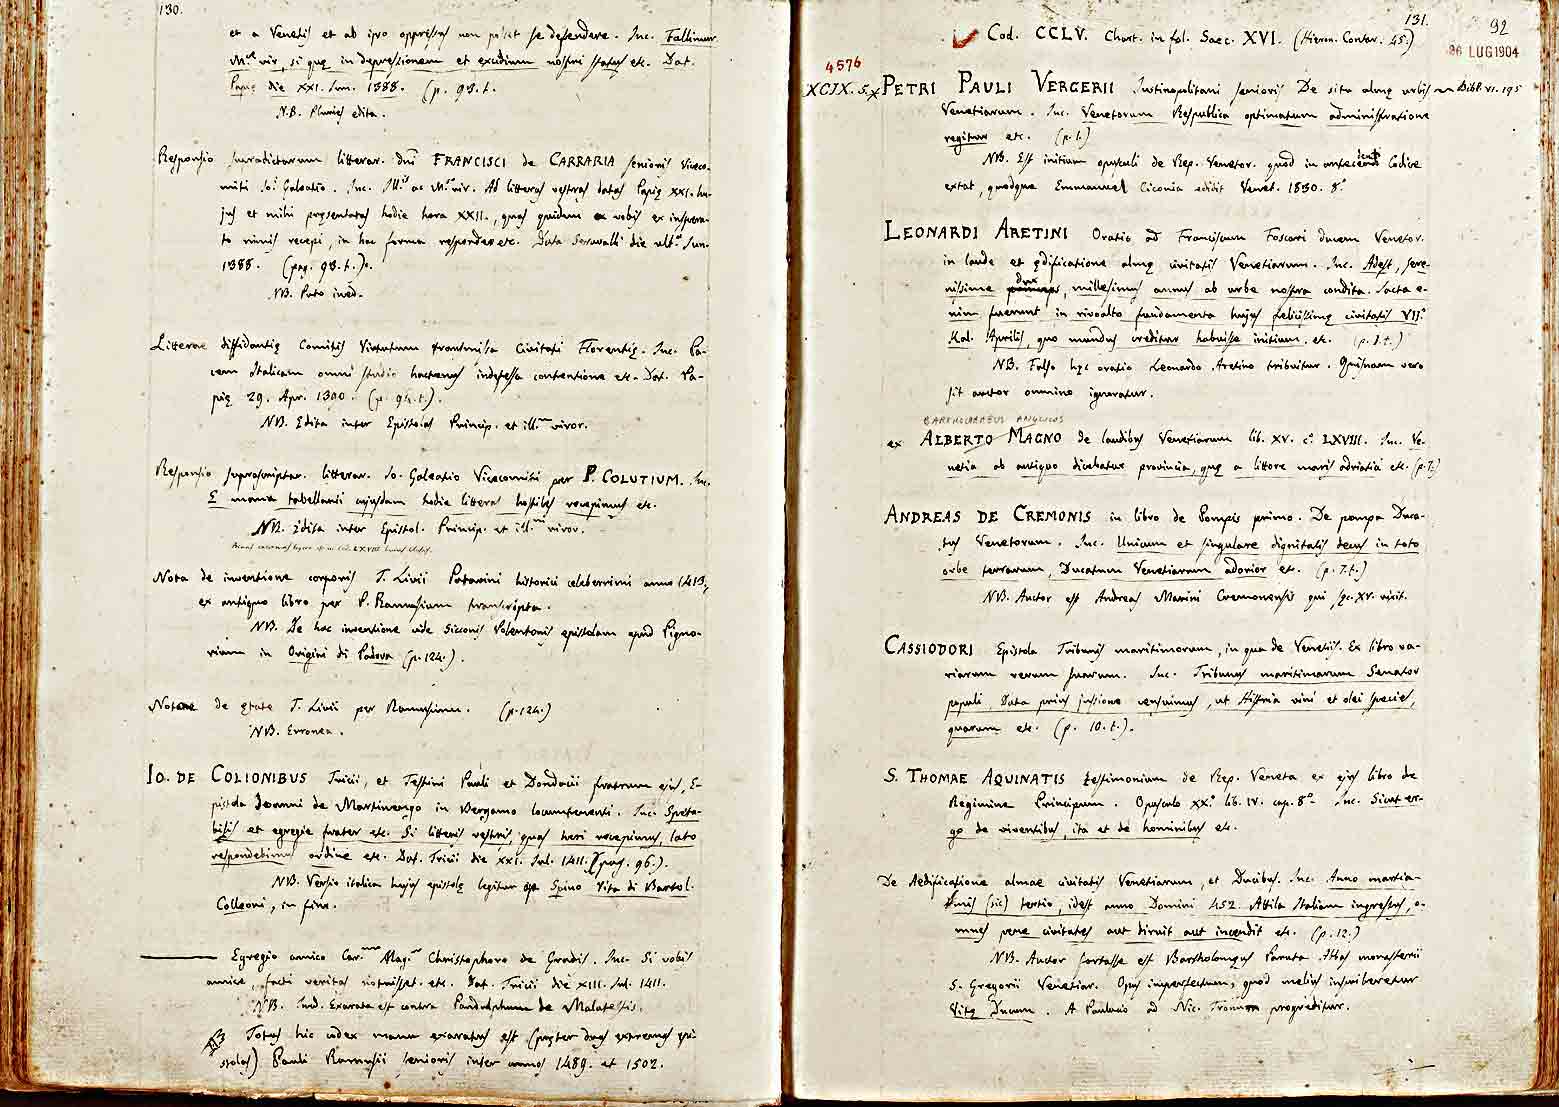 130.
et a Venetis et ab ipso oppressus non posset se defendere. Inc. Fallimur
M.ce vir, si quę in depressionem et excidium nostri status etc. Dat.
Papię die XXI. Jun. 1388. (p. 93. t.
N.B. Pluries edita.
Responsio supradictarum litterar. dni FRANCISCI de CARRARIA senioris Viceco-
miti Jo: Galeatio. Inc. Ill.is ac M.ce vir. Ad litteras vestras datas Papię XXI. hu-
jus et mihi pręsentatas hodie hora XXII., quas quidem a vobis ex inspera-
to nimis recepi, in hac forma respondeo etc. Data Seravalli die ult.a Jun.
1388. (pag. 93. t.).
NB. Puto ined.
Litterae diffidantię Comitis Virtutum transmissa Civitati Florentię. Inc. Pa-
cem Italicam omni studio hactenus indefessa contentione etc. Dat. Pa-
pię 29. Apr. 1390. (p. 94. t.).
NB. Edita inter Epistolas Princip. et ill.um viror.
Responsio suprascriptar. litterar. Jo. Galeatio Vicecomiti per P. COLUTIUM. Inc.
E manu tabellarii cujusdam hodie litteras hostiles recepimus etc.
NB. Edita inter Epistol. Princip. et ill.um viror.
Nota de inventione corporis T. Livii Patavini historici celeberrimi anno 1413,
ex antiquo libro per P. Ramusium transcripta.
NB. De hac inventione vide Sicconis Polentonis epistolam apud Pigno-
rium in Origini di Padova (p. 124.).
Notae de ętate T. Livii per Ramusium. (p. 124.)
NB. Erronea.
IO. DE COLIONIBUS Tricii, et Testini Pauli et Dondacii fratrum ejus, E-
pistola Joanni de Martinengo in Bergamo locumtenenti. Inc. Specta-
bilis et egregie frater etc. Si litteris vestris, quas heri recepimus, lato
respondebimus ordine etc. Dat. Tricii die XXI. Jul. 1411. (pag. 96.).
NB. Versio italica hujus epistolę legitur ap. Spino Vita di Bartol.
Colleoni, in fine.
Egregio amico Car.mo Mag.ro Christophoro de Gradis. Inc. Si vobis
amice, facti veritas notuisset. etc. Dat. Tricii die XIII. Jul. 1411.
NB. Ined. Exarata est contra Pandulphum de Malatestis.
NB Totus hic codex manu exaratus est (pręter duas extremas epi-
stolas) Pauli Ramusii senioris inter annos 1489. et 1502.
131.
92
26 LUG 1904
Cod. CCLV. Chart. in fol. Saec. XVI. (Hieron. Contar. 45.)
4576
XCIX. 5. x
PETRI PAULI VERGERII Justinopolitani senioris De situ almę urbis
Bibl. VI. 195
Venetiarum. Inc. Venetorum Respublica optimatum administratione
regitur etc. (p. 1.)
NB. Est initium opusculi de Rep. Venetor. quod in antecedenti Codice
extat, quodque Emmanuel Ciconia edidit Venet. 1830. 8.o
LEONARDI ARETINI Oratio ad Franciscum Foscari ducem Venetor.
in laude et ędificatione almę civitatis Venetiarum. Inc. Adest, sere-
nissime dux, millesimus annus ab urbe nostra condita. Jacta e-
nim fuerunt in rivoalto fundamenta hujus felicissimę civitatis VII.o
Kal. Aprilis, quo mundus creditur habuisse initium. etc. (p. 1. t.)
NB. Falso hęc oratio Leonardo Aretino tribuitur. Quisnam vero
sit auctor omnino ignoratur.
BARTHOLOMAEUS ANGLICUS
ex ALBERTO MAGNO de laudibus Venetiarum lib. XV. c.o LXVIII. Inc. Ve-
netia ab antiquo dicebatur provincia, quę a littore maris adriatici etc. (p. 7.)
ANDREAS DE CREMONIS in libro de Pompis primo. De pompa Duca-
tus Venetorum. Inc. Unicum et singulare dignitatis decus in toto
orbe terrarum, Ducatum Venetiarum adorior etc. (p. 7. t.)
NB. Auctor est Andreas Marini Cremonensis qui sęc. XV. vixit.
CASSIODORI Epistola Tribunis maritimorum, in qua de Venetiis. Ex libro va-
riarum rerum suarum. Inc. Tribunus maritimarum Senator
populi. Data prius jussione censuimus, ut Histria vini et olei species,
quarum etc. (p. 10. t.).
S. THOMAE AQUINATIS testimonium de Rep. Veneta ex ejus libro de
Regimine Principum. Opusculo XX.o lib. IV. cap. 8.o Inc. Sicut er-
go de viventibus, ita et de hominibus etc.
De Aedificatione almae civitatis Venetiarum, et Ducibus. Inc. Anno martia-
nis (sic) tertio, idest anno Domini 452. Attila Italiam ingressus, o-
mnes pene civitates aut diruit aut incendit etc. (p. 12.)
NB. Auctor fortasse est Bartholomęus Paruta Abbas monasterii
S. Gregorii Venetiar. Opus imperfectum, quod melius inscriberetur
Vitę Ducum. A Paulucio ad Nic. Tronum progreditur.